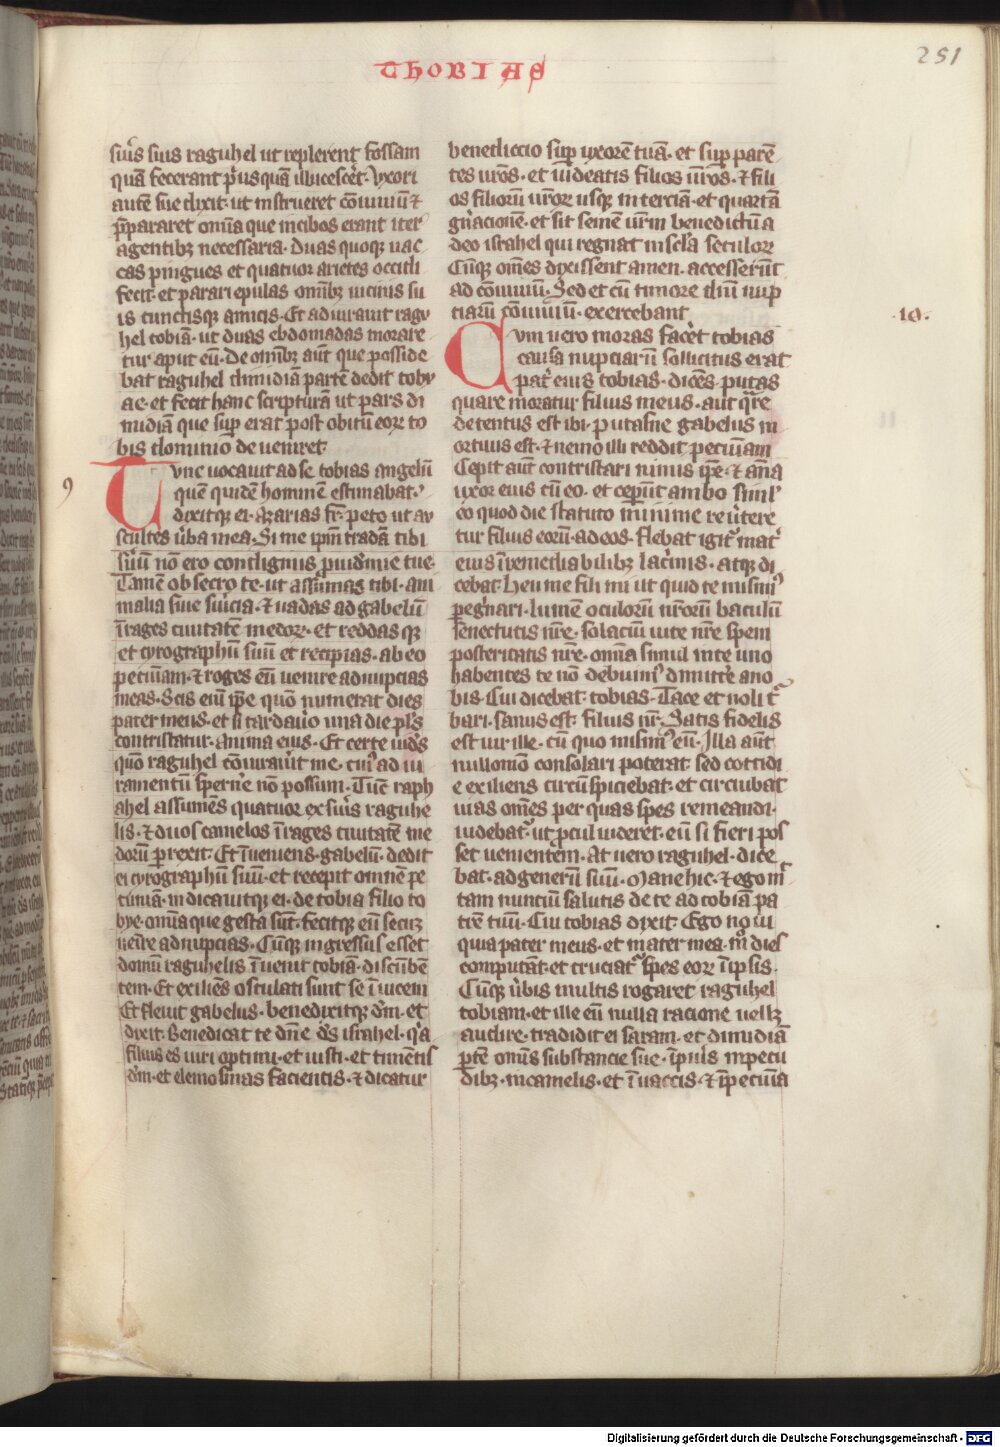 THOBIAS
251
suis suis raguhel ut replerent fossam
quā fecerant p̄usquā illucescēt. Uxori
autē sue dixit. ut instrueret cōuiuiū ⁊
p̄pararet om̄ia que in cibos erant iter
agentibꝫ necessaria. Duas quoqꝫ uac
cas pingues et quatuor arietes occidi
fecit. et parari epulas om̄ibꝫ uicinis su
is cunctisqꝫ amicis. Et adiurauit ragu
hel tobiā. ut duas ebdomadas morare
tur aput eū. De om̄ibꝫ aūt que posside
bat raguhel dimidiā partē dedit toby
ae. et fecit hanc scripturā ut pars di
midia que sup erat post obitū eoꝝ to
bis dominio deueniret
9
Tunc uocauit ad se tobias angelū
quē quidē hominē estimabat.
dixitqꝫ ei. Azarias fr̄. peto ut au
scultes ūba mea. Si me ip̄m tradā tibi
s̄uū nō ero condignus ꝓuidēnie tue.
Tamē obsecro te. ut assūmas tibi. ani
malia siue s̄uicia. ⁊ uadas ad gabelū
ī rages ciuitatē medoꝝ. et reddas qꝫ
ei cyrographū suū et recipias. ab eo
pecuīam. ⁊ roges eū uenire ad nupcias
meas. Scis eīm ip̄e quō numerat dies
pater meus. et si tardauo una die pl̄s
contristatur. anima eius. Et certe uid̄s
quō raguhel cōiurauit me. cuiꝰ ad iu
ramentū sperne nō possum. Tūc raph
ahel assumēs quatuor ex s̄uis raguhe
lis. ⁊ duos camelos ī rages ciuitatē me
dorū ꝑrexit. Et īueniens. gabelū. dedit
ei cyrographū suū. et recepit omnē pe
cuniā. indicauitqꝫ ei. de tobia filio to
bye. om̄ia que gesta sūt. fecitqꝫ eū secū
uenire ad nupcias. Cūqꝫ ingressus esset
domū raguhelis īuenit tobiā. discūbē
tem. Et exiliēs osculati sunt se īuicem
Et fleuit gabelus. benedixitqꝫ dm̄. et
dixit. Benedicat te dn̄e ds̄ israhel. q̄a
filius es uiri optimi. et iusti. et timētis
dm̄. et elemosinas facientis. ⁊ dicatur
benediccio sup uxorē tuā. et sup parē
tes ur̄os. et uideatis filios ur̄os. ⁊ fili
os filiorū ur̄oꝝ usqꝫ in terciā. et quartā
gn̄acionē. et sit semē ur̄m benedictū a
deo israhel qui regnat in sc̄la seculoꝝ
Cūqꝫ om̄es dixissent amen. accesserūt
ad cōuiuiū. Sed et cū timore dn̄i nup
tiarū cōuiuiū. exercebant
10.
Cum uero moras facēt tobias
causa nupciarū sollicitus erat
pat̄ eius tobias. dicēs. putas
quare moratur filius meus. aut q̄re
detentus est ibi. putasne gabelus m
ortuus est. ⁊ nemo illi reddit pecuīam
Cepit aūt contristari nimis ip̄e. ⁊ an̄a
uxor eius cū eo. et cepūt ambo siml̄
eo quod die statuto minime reūtere
tur filius eorū. ad eos. flebat igit̄ mat̄
eius ī remediabilibꝫ lac̄mis. atqꝫ di
cebat. Heu me fili mi ut quid te misimꝰ
ꝑeḡnari. lumē oculorū nr̄orū baculū
senectutis nr̄e. solaciū uite nr̄e spem
posteritatis nr̄e. om̄ia simul in te uno
habentes te nō debuimꝰ dimitte a no
bis. Cui dicebat. tobias. Tace et noli t̄
bari. sanus est. filius nr̄. Satis fidelis
est uir ille. cū quo misimꝰ eū. Illa aūt
nullomō consolari poterat sed cottidi
e exiliens circūspiciebat. et circuibat
uias om̄es per quas spes remeandi.
uidebat̄. ut ꝓcul uideret. eū si fieri pos
set uenientem. At uero raguhel. dice
bat. ad generū suū. Mane hic. ⁊ ego mt̄
tam nunciū salutis de te ad tobiā pa
trē tuū. Cui tobias dixit. Ego noui
quia pater meus. et mater mea. m̄ dies
computāt. et cruciat̄ sp̄es eoꝝ ī ip̄sis.
Cūqꝫ ūbis multis rogaret raguhel
tobiam. et ille eū nulla racione uellꝫ
audire. tradidit ei saram. et dimidiā
ꝑtē omīs substancie sue. ī pūls in pecu
dibꝫ. in camelis. et ī uaccis. ⁊ ī pecuīa
Digitalisierung gefördert durch die Deutsche Forschungsgemeinschaft - DFG